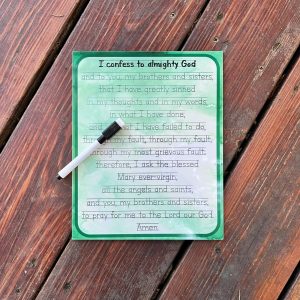 I confess to almighty God
and to you, my brothers and sisters,
that I have greatly sinned
in my thoughts and in my words,
in what I have done,
and what I have failed to do,
through my fault, through my fault,
through my most grievous fault;
therefore, I ask the blessed
Mary ever-virgin,
all the angels and saints,
and you, my brothers and sisters,
to pray for me to the Lord our God.
Amen.